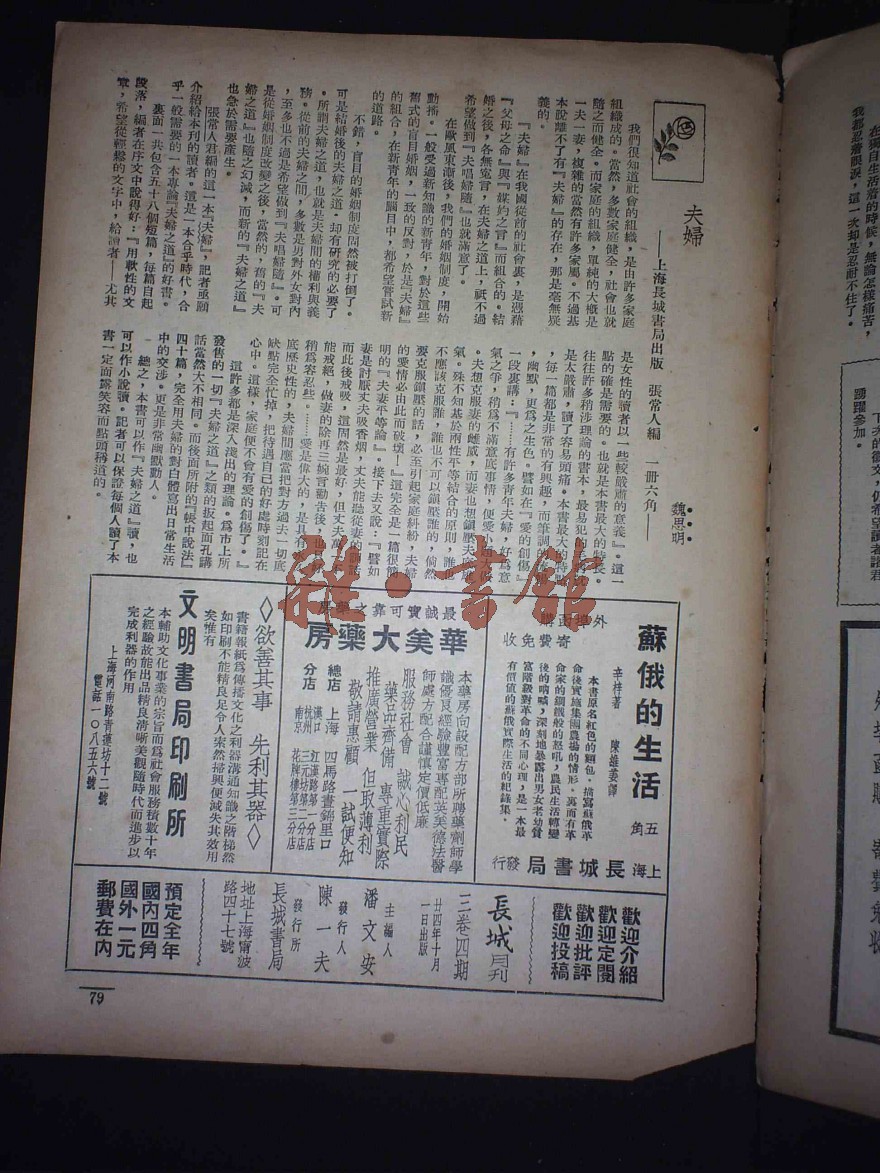 夫婦
——上海長城書局出版 張常人編 一冊六角——
魏思明
我們很知道社會的組織，是由許多家庭
組織成的。當然，多數家庭健全，社會也就
隨之而健全。而家庭的組織，單純的大概是
一夫一妻，複雜的當然有許多家屬。不過基
本說離不了有『夫婦』的存在，那是毫無疑
義的。
『夫婦』在我國從前的社會裏，是憑藉
『父母之命』與『媒妁之言』而組合的。結
婚之後，各無寃言，在夫婦之道上，祇不過
希望做到『夫唱婦隨』也就滿意了。
在歐風東漸後，我們的婚姻制度，開始
動搖。一般受過新知識的新青年，對於這些
舊式的盲目婚姻，一致的反對，於是『夫婦』
的組合，在新青年的腦目中，都希望嘗試新
的道路。
不錯，盲目的婚姻制度固然被打倒了。
可是結婚後的夫婦之道，却有研究的必要了
。所謂夫婦之道，也就是夫婦間的權利與義
務。從前的夫婦之間，多數是男對外女對內
，至多也不過是希望做到『夫唱婦隨』。可
是從婚姻制度改變之後，當然的，舊的『夫
婦之道』也隨之幻滅，而新的『夫婦之道』
也急於需要產生。
張常人君編的這一本『夫婦』，記者亟願
介紹給本刊的讀者。這是一本合乎時代，合
乎一般需要的一本專論『夫婦之道』的好書。
裏面一共包含五十八個短篇，每篇自起
段落，編者在序文中說得好：『用軟性的文
章，希望從輕鬆的文字中，給讀者——尤其
是女性的讀者以一些較嚴肅的意義』。這一
點的確是需要的。也就是本書最大的特長。
往往許多稍涉理論的書本，最易犯的
是太嚴肅，讀了容易頭痛。本書最大的特點
，每一篇都是非常的有興趣，而筆調的
，幽默，更爲之生色。譬如在『愛的創傷』
一段裏講：『……有許多青年夫婦，好爲意
氣之爭，稍爲不滿意底事情，便愛
。夫想克服妻的雌威，而妻也想鎭壓夫底
氣。殊不知基於兩性平等結合的原則，誰也
不應該克服誰，誰也不可以鎭壓誰的，倘然
要克服鎭壓的話，必至引起家庭糾紛，夫婦
的愛情必由此而破壞——』這完全是一篇很簡
明的『夫妻平等論』。接下去又說：『譬如
妻是討厭丈夫吸香烟，丈夫能聽從妻的
而此後戒吸，這固然是最好，但丈夫萬一不
能戒絕，做妻的除再三婉言勸告後，也只好
稍爲容忍些。……愛是偉大的，是具有
底歷史性的，夫婦間應當把對方過去一切底
缺點完全忙掉，把待遇自己的好處時刻記在
心中。這樣，家庭便不會有愛的創傷了。』
這許多都是深入淺出的理論。爲市上所
發售的一切『夫婦之道』之類的扳起面孔講
話當然大不相同。而後面所附的『帳中說法』
四十篇，完全用夫婦的對白體寫出日常生活
中的交涉。更是非常幽默動人。
總之，本書可以作『夫婦之道』讀，也
可以作小說讀。記者可以保證每個人讀了本
書一定面露笑容而點頭稱道的。
蘇俄的生活
五角
辛梓著 陳雄姜譯
外埠函購
寄費免收
本書原名紅色的麵包。描寫蘇俄革
命後實施集團農場的情形。裏面有革
命家的鋼鐵般的怒吼，農民生活轉變
後的吶喊，深刻地暴露出男女老幼貧
富階級對革命的不同心理，是一本最
有價值的蘇俄實際生活的紀錄集。
上海 長城書局發行
最誠實可靠之藥房
華美大藥房
本藥房向設配方部所聘藥劑師學
識優良經驗豐富專配英美德法醫
師處方配合謹愼定價低廉
服務社會 誠心利民
藥品齊備 專重實際
推廣營業 但取薄利
敬請惠顧 一試便知
總店 上海 四馬路畫錦里口
分店
漢口 江漢路第一分店
杭州 三元坊第二分店
南京 花牌樓第三分店
◇欲善其事 先利其器◇
書籍報紙爲傳播文化之利器溝通知識之階梯然
如印刷不能精良足令人索然掃興便減失其效用
矣惟有
文明書局印刷所
本輔助文化事業的宗旨而爲社會服務積數十年
之經驗故能出品精良清晰美觀隨時代而進步以
完成利器的作用
上海河南路青蓮坊十二號
電話一〇八五六號
歡迎介紹
歡迎定閱
歡迎批評
歡迎投稿
長城月刊
三卷四期
廿四年十月
一日出版
主編人
潘文安
發行人
陳一夫
發行所
長城書局
地址上海甯波
路四十七號
預定全年
國內四角
國外一元
郵費在內
79
在獨自生活着的時候，無論怎樣痛苦，
我都忍着眼淚，這一次却是忍耐不住了。
踴躍參加。
雜·書館